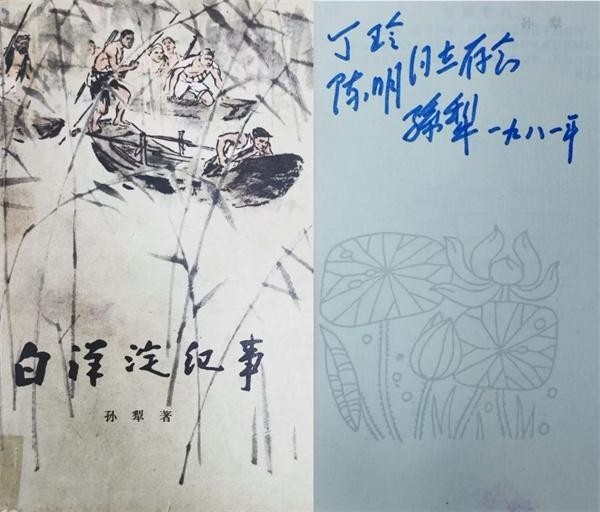 白洋淀纪事
孙 犁 著
孙 犁
丁玲
陈明同志存念
孫犁 一九八一年